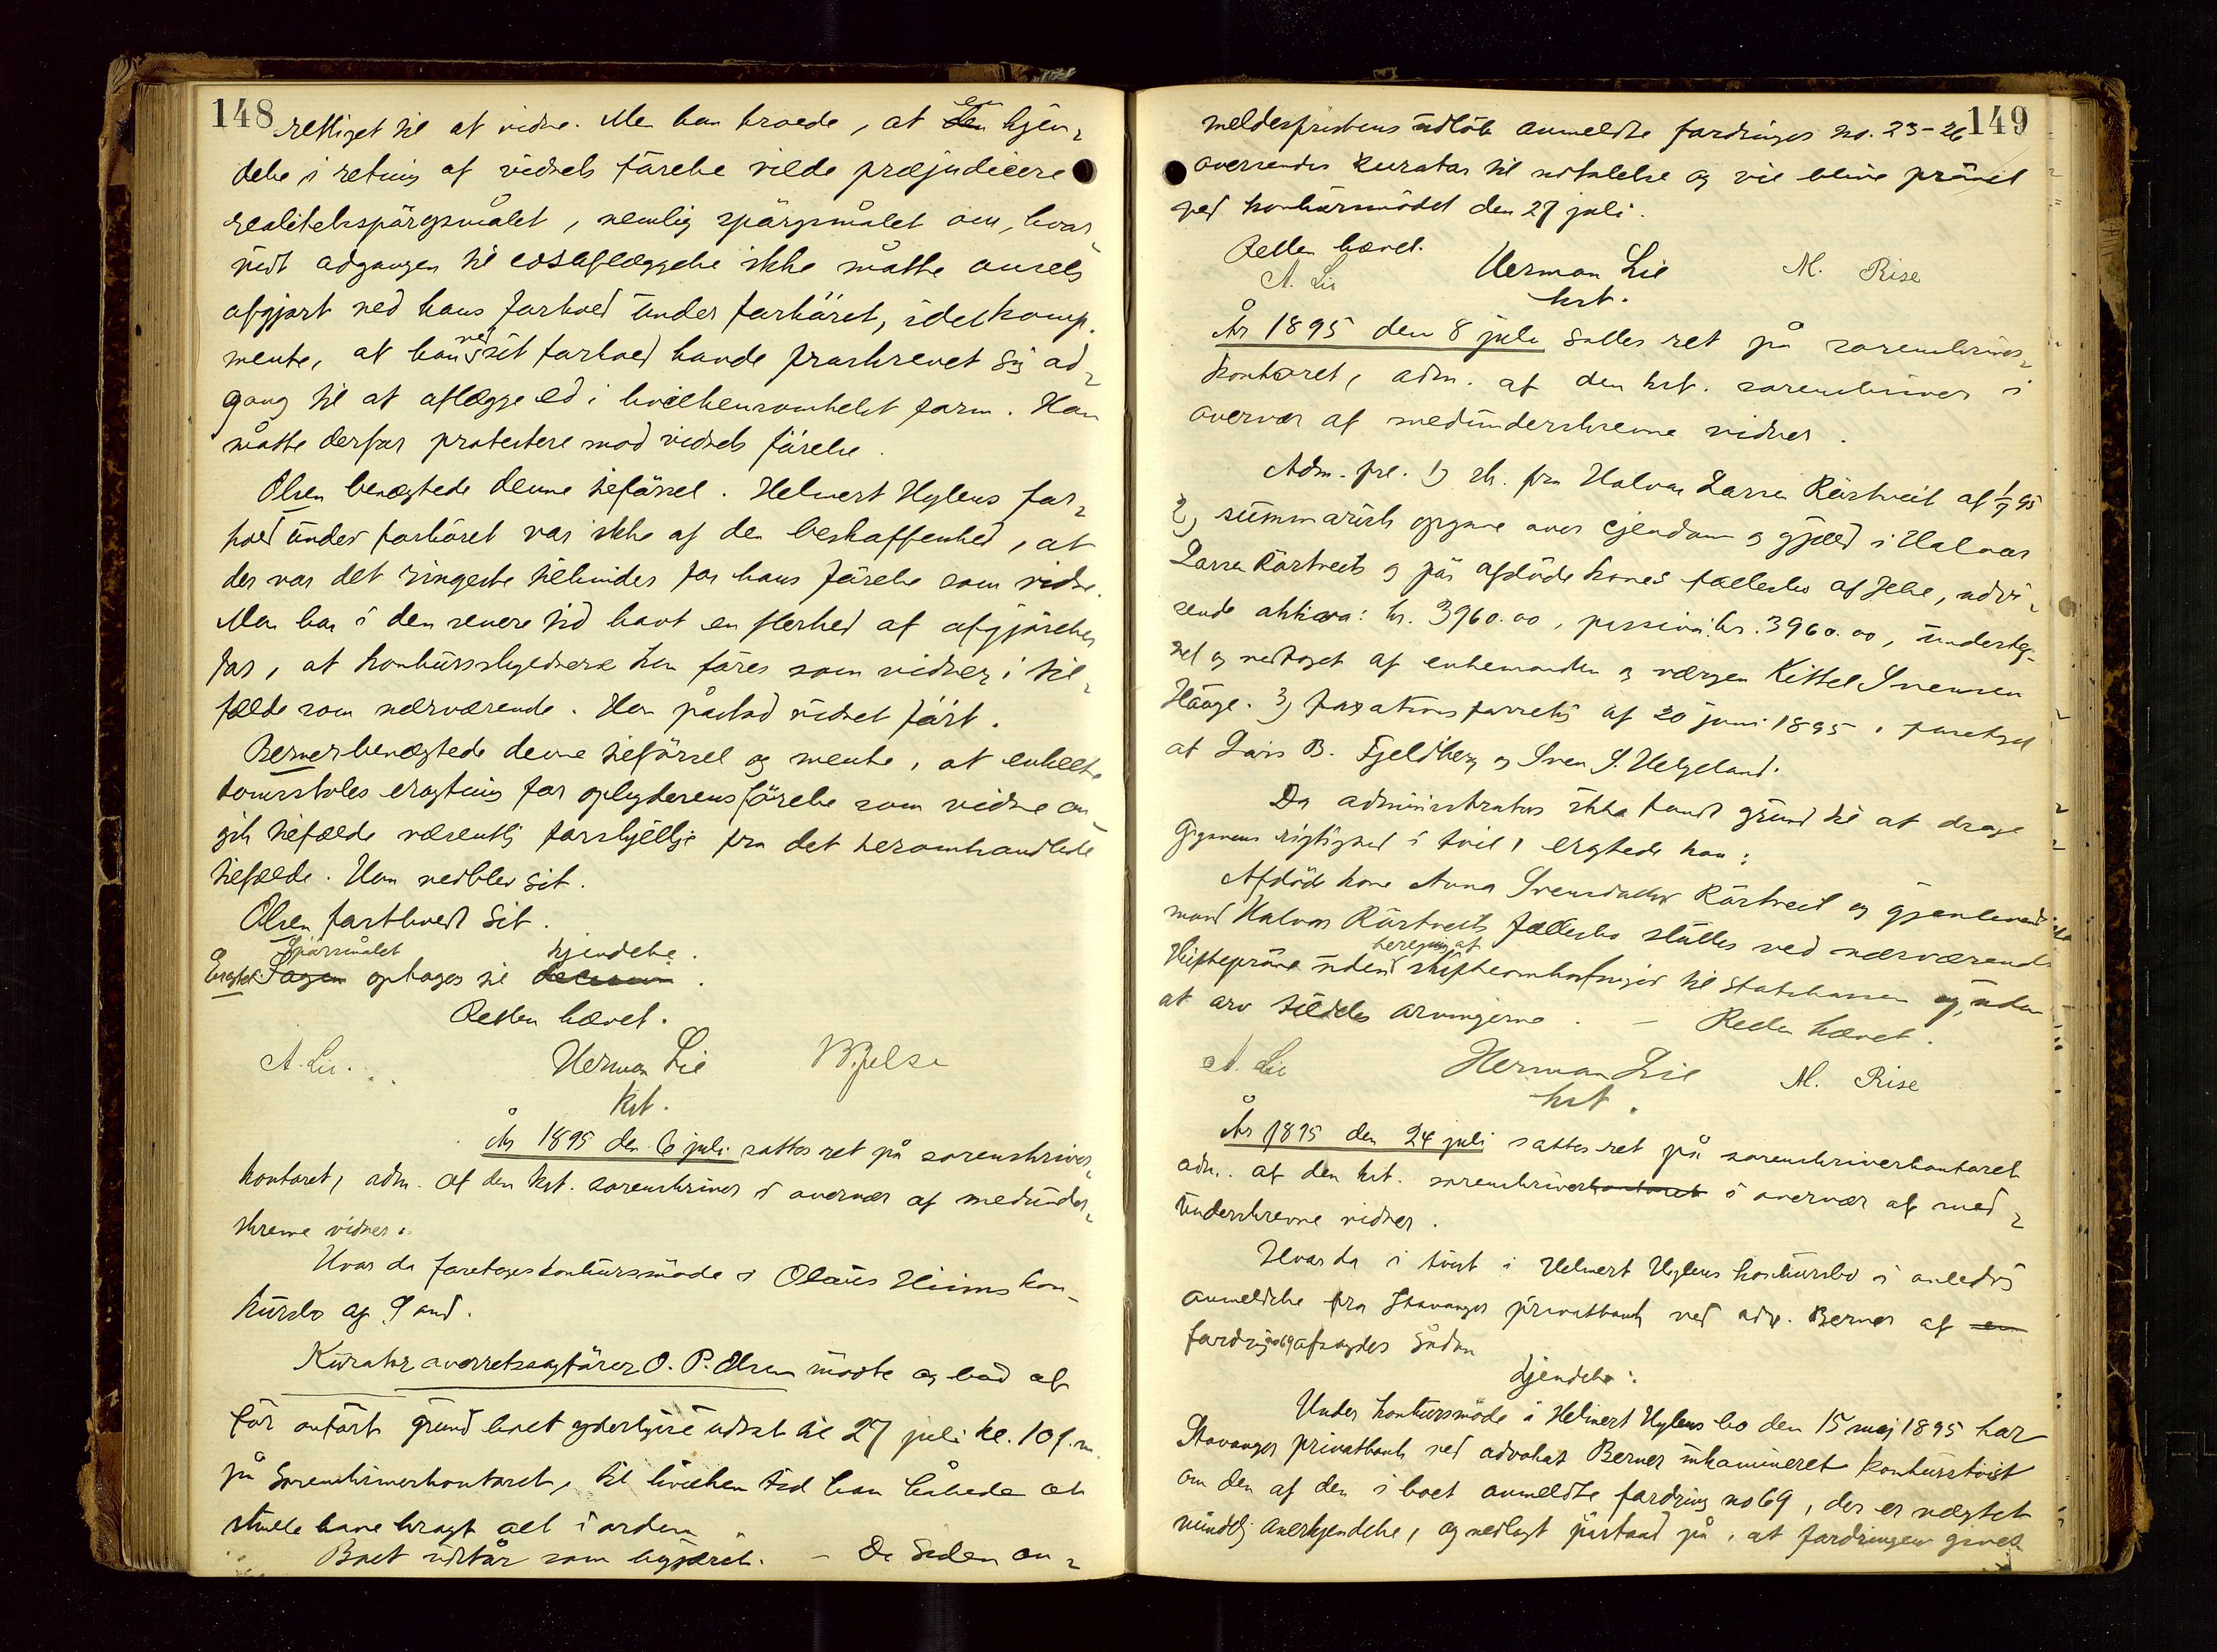 148
rettiget til at vidne. Men han troede, at en kjen-
delse i retning af vidnets førelse vilde præjudicere
realitetsspørgsmålet, nemlig spørgsmålet om, hvor-
vidt adgangen til edsaflæggelse ikke måtte ansees
afgjort ved hans forhold under forhøret, idet komp.
mente, at han ved sit forhold havde fraskrevet sig ad-
gang til at aflægge ed i hvilkensomhelst form. Han
måtte derfor protestere mod vidnets førelse.
Olsen benægtede denne tilførsel. Helmert Hylens for-
hold under forhøret var ikke af den beskaffenhed, at
der var det ringeste tilhinder for hans førelse som vidne.
Man har i den senere tid havt en flerhed af afgjørelser
for, at konkursskyldnere kan føres som vidner i til-
fælde som nærværende. Han påstod vidnet ført.
Berner benægtede denne tilførsel og mente, at enkelte
domstoles eragtning for oplyderens førelse som vidne an-
gik tilfælde væsentlig forskjellige fra det heromhandlede
tilfælde. Han vedblev sit.
Olsen fastholdt sit.
Spørsmålet kjendelse.
Eragtet: Sagen optages til decision.
Retten hævet.
A. Lie. Herman Lie B. Jelsa
kst.
År 1895 den 6 juli sattes ret på sorenskriver-
kontoret, adm. af den kst. sorenskriver i overvær af medunder-
skrevne vidner.
Hvor da foretoges konkursmøde i Olaus Hiims kon-
kursbo af Sand.
Kurator overretssagfører O. P. Olsen mødte og bad af
før anført grund boet yderligere udsat til 27 juli kl. 10 f.m.
på sorenskriverkontoret, til hvilken tid han håbede at
skulle have bragt alt i orden.
Boet udstår som begjæret. – De siden an-
149
meldesfristens udløb anmeldte fordringer no. 23-26
oversendes kurator til udtalelse og vil blive prøvet
ved konkursmødet den 27 juli.
Retten hævet.
A. Lie Herman Lie M. Rise
kst.
År 1895 den 8 juli sattes ret på sorenskriver-
kontoret, adm. af den kst. sorenskriver i
overvær af medunderskrevne vidner.
Adm. frl. 1) sk. fra Halvor Larsen Rørtveit af 1/7 95
2) summarisk opgave over eiendom og gjæld i Halvor
Larsen Rørtveits og hans afdøde kones fællesbo af Jelse, udvi-
sende aktiva: kr. 3960.00, passiva: kr. 3960.00, underteg-
net og vedtaget af enkemanden og værgen Kittel Svensen
Hauge. 3) taxationsforretn. af 20 juni 1895, foretaget
af Lars B. Fjeldberg og Sven S. Helgeland.
Da administrator ikke fandt grund til at drage
opgavens rigtighed i tvil, eragtede han:
Afdøde kone Anna Svensdatter Rørtveit og gjenlevende
mand Halvor Rørtveits fællesbo sluttes ved nærværende
beregning af
skifteprøve uden skifteomkostninger til statskassen og uden
at arv tildeles arvingerne. – Retten hævet.
A. Lie Herman Lie M. Rise
kst.
År 1895 den 24 juli sattes ret på sorenskriverkontoret
adm. af den kst. sorenskriverkontoret i overvær af med-
underskrevne vidner.
Hvor da i tvist i Helmert Hylens konkursbo i anledn.
anmeldelse fra Stavanger privatbank ved adv. Berner af en
fordring no 69 afsagdes sådan
kjendelse:
Under konkursmøde i Helmert Hylens bo den 15 maj 1895 har
Stavanger privatbank ved advokat Berner inkamineret konkurstvist
om den af den i boet anmeldte fordring no 69, der er nægtet
mindelig anerkjendelse, og nedlagt påstand på, at fordringen gives